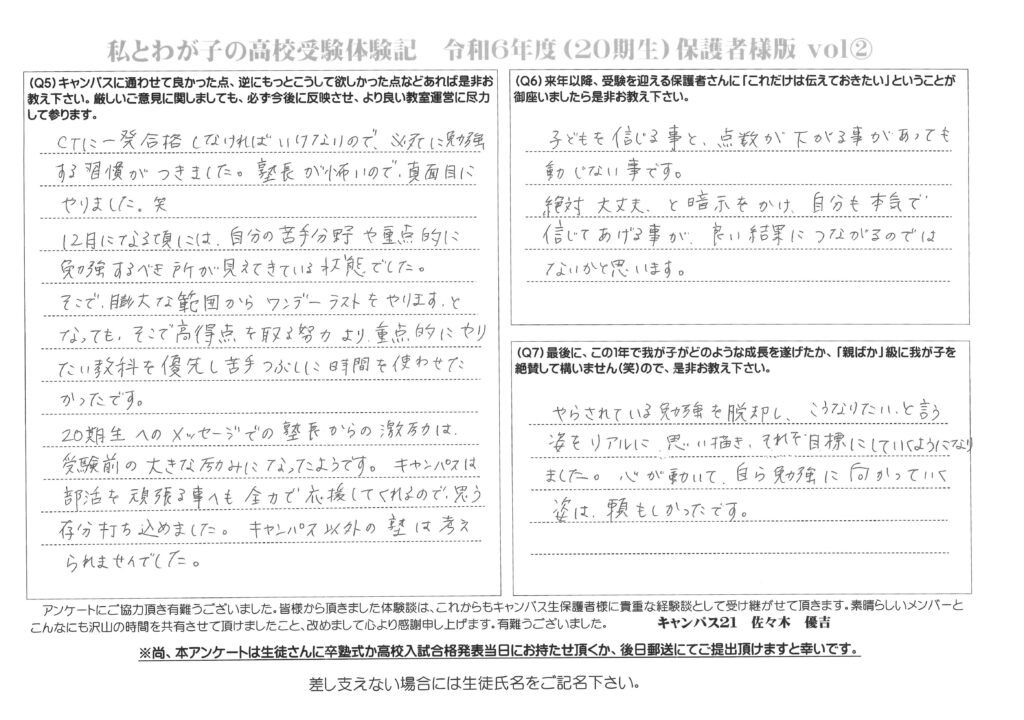 私とわが子の高校受験体験記　令和6年度（20期生）保護者様版 vol②
（Q5）キャンパスに通わせて良かった点、逆にもっとこうして欲しかった点などあれば是非お
教え下さい。厳しいご意見に関しましても、必ず今後に反映させ、より良い教室運営に尽力
して参ります。
CTに一発合格しなければいけないので、必死に勉強
する習慣がつきました。塾長が怖いので、真面目に
やりました。笑
12月になる頃には、自分の苦手分野や重点的に
勉強するべき所が見えてきている状態でした。
そこで、膨大な範囲からワンデーラストをやります、と
なっても、そこで高得点を取る努力より、重点的にやり
たい教科を優先し苦手つぶしに時間を使わせた
かったです。
20期生へのメッセージでの塾長からの激励は、
受験前の大きな励みになったようです。キャンパスは
部活を頑張る事へも全力で応援してくれるので、思う
存分打ち込めました。キャンパス以外の塾は考え
られませんでした。
（Q6）来年以降、受験を迎える保護者さんに「これだけは伝えておきたい」ということが
御座いましたら是非お教え下さい。
子どもを信じる事と、点数が下がる事があっても
動じない事です。
絶対大丈夫、と暗示をかけ、自分も本気で
信じてあげる事が、良い結果につながるのでは
ないかと思います。
（Q7）最後に、この1年で我が子がどのような成長を遂げたか、「親ばか」級に我が子を
絶賛して構いません（笑）ので、是非お教え下さい。
やらされている勉強を脱却し、こうなりたい、と言う
姿をリアルに思い描き、それを目標にしていくようになり
ました。心が動いて、自ら勉強に向かっていく
姿は、頼もしかったです。
アンケートにご協力頂き有難うございました。皆様から頂きました体験談は、これからもキャンパス生保護者様に貴重な経験談として受け継がせて頂きます。素晴らしいメンバーと
こんなにも沢山の時間を共有させて頂けましたこと、改めまして心より感謝申し上げます。有難うございました。　キャンパス21　佐々木　優吉
※尚、本アンケートは生徒さんに卒塾式か高校入試合格発表当日にお持たせ頂くか、後日郵送にてご提出頂けますと幸いです。
差し支えない場合には生徒氏名をご記名下さい。